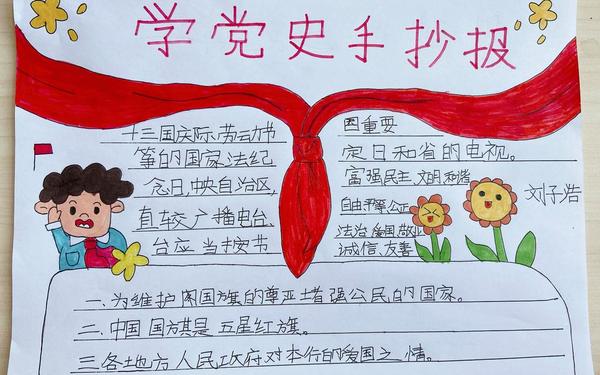 学党史手抄报
十三国庆际、劳动节
等的国家法纪
念日,中央自治区,
直较广播电台、
台应当按节
国重要
定日和省的电视。
富强民主、文明和谐
自由平等、公正
法治、爱国、敬业
诚信、友善
刘子浩
一、为维护国旗的尊严增强公民的国家。
二、中国国旗是五星红旗。
三、各地方人民政府对本行的爱国之情。